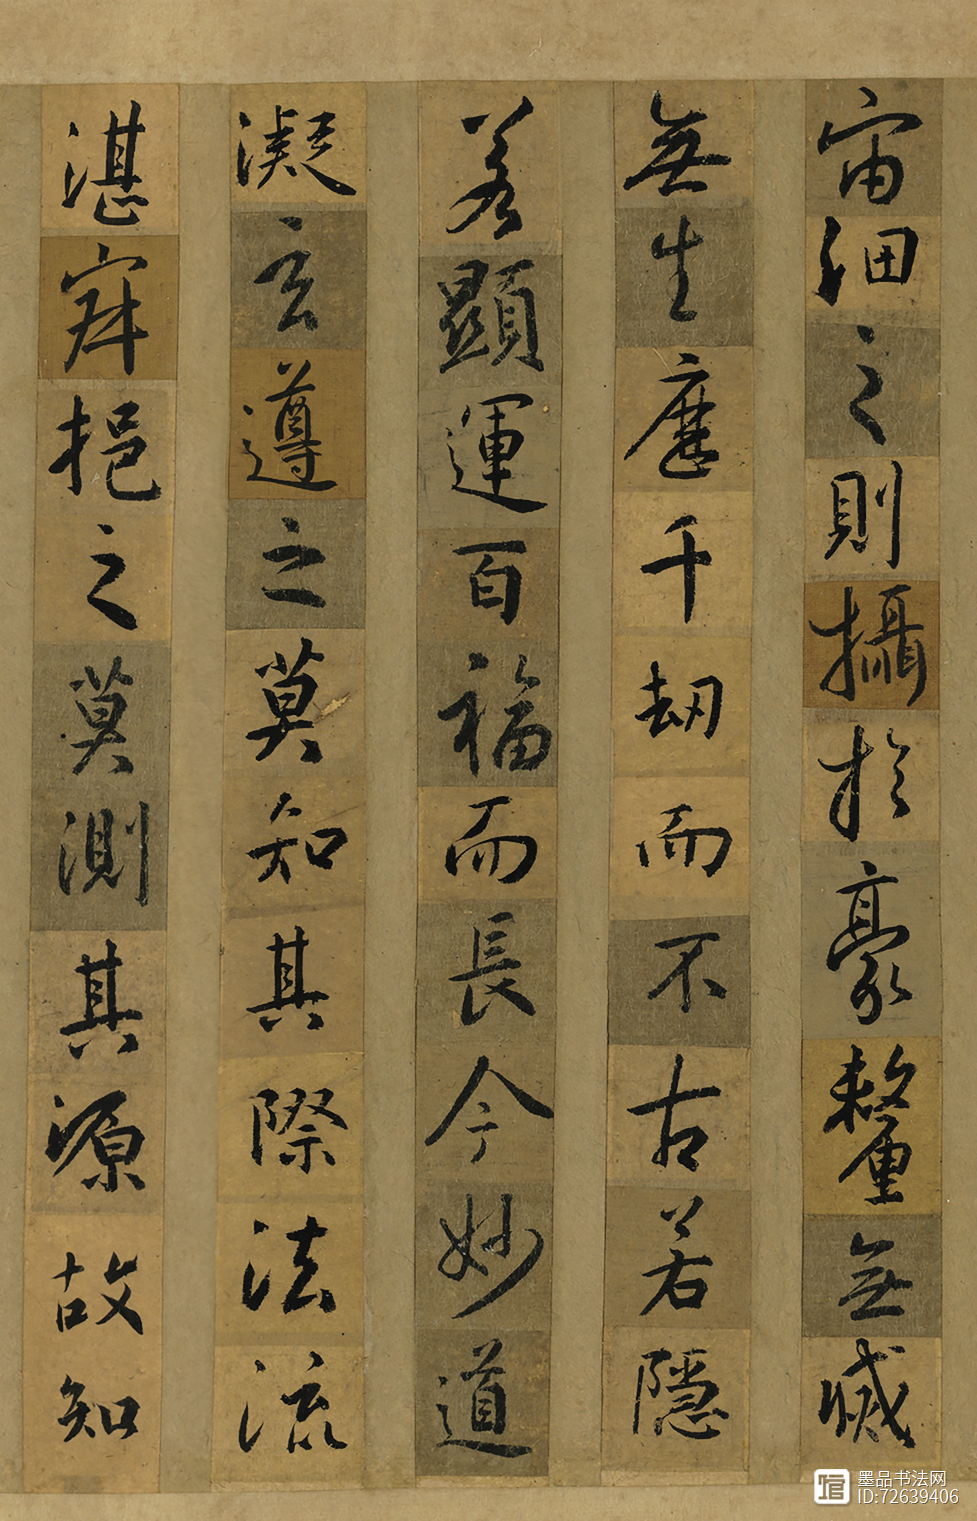 宙細之則攝於豪釐無滅
無生歷千劫而不古若隱
若顯運百福而長今妙道
凝玄遵之莫知其際法流
湛寂挹之莫測其源故知
墨品书法网
ID:72639406